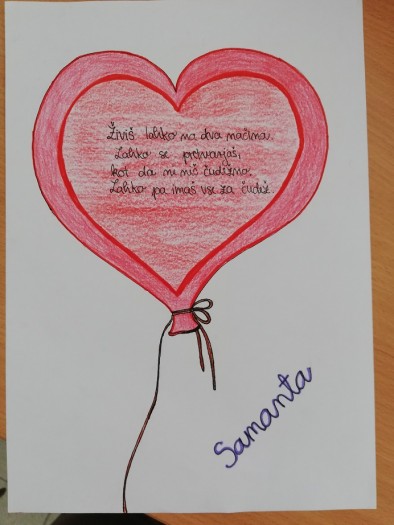 Živiš lahko na dva načina.
Lahko se pretvarjaš,
kot da ni nič čudežno.
Lahko pa imaš vse za čudež.
Samanta